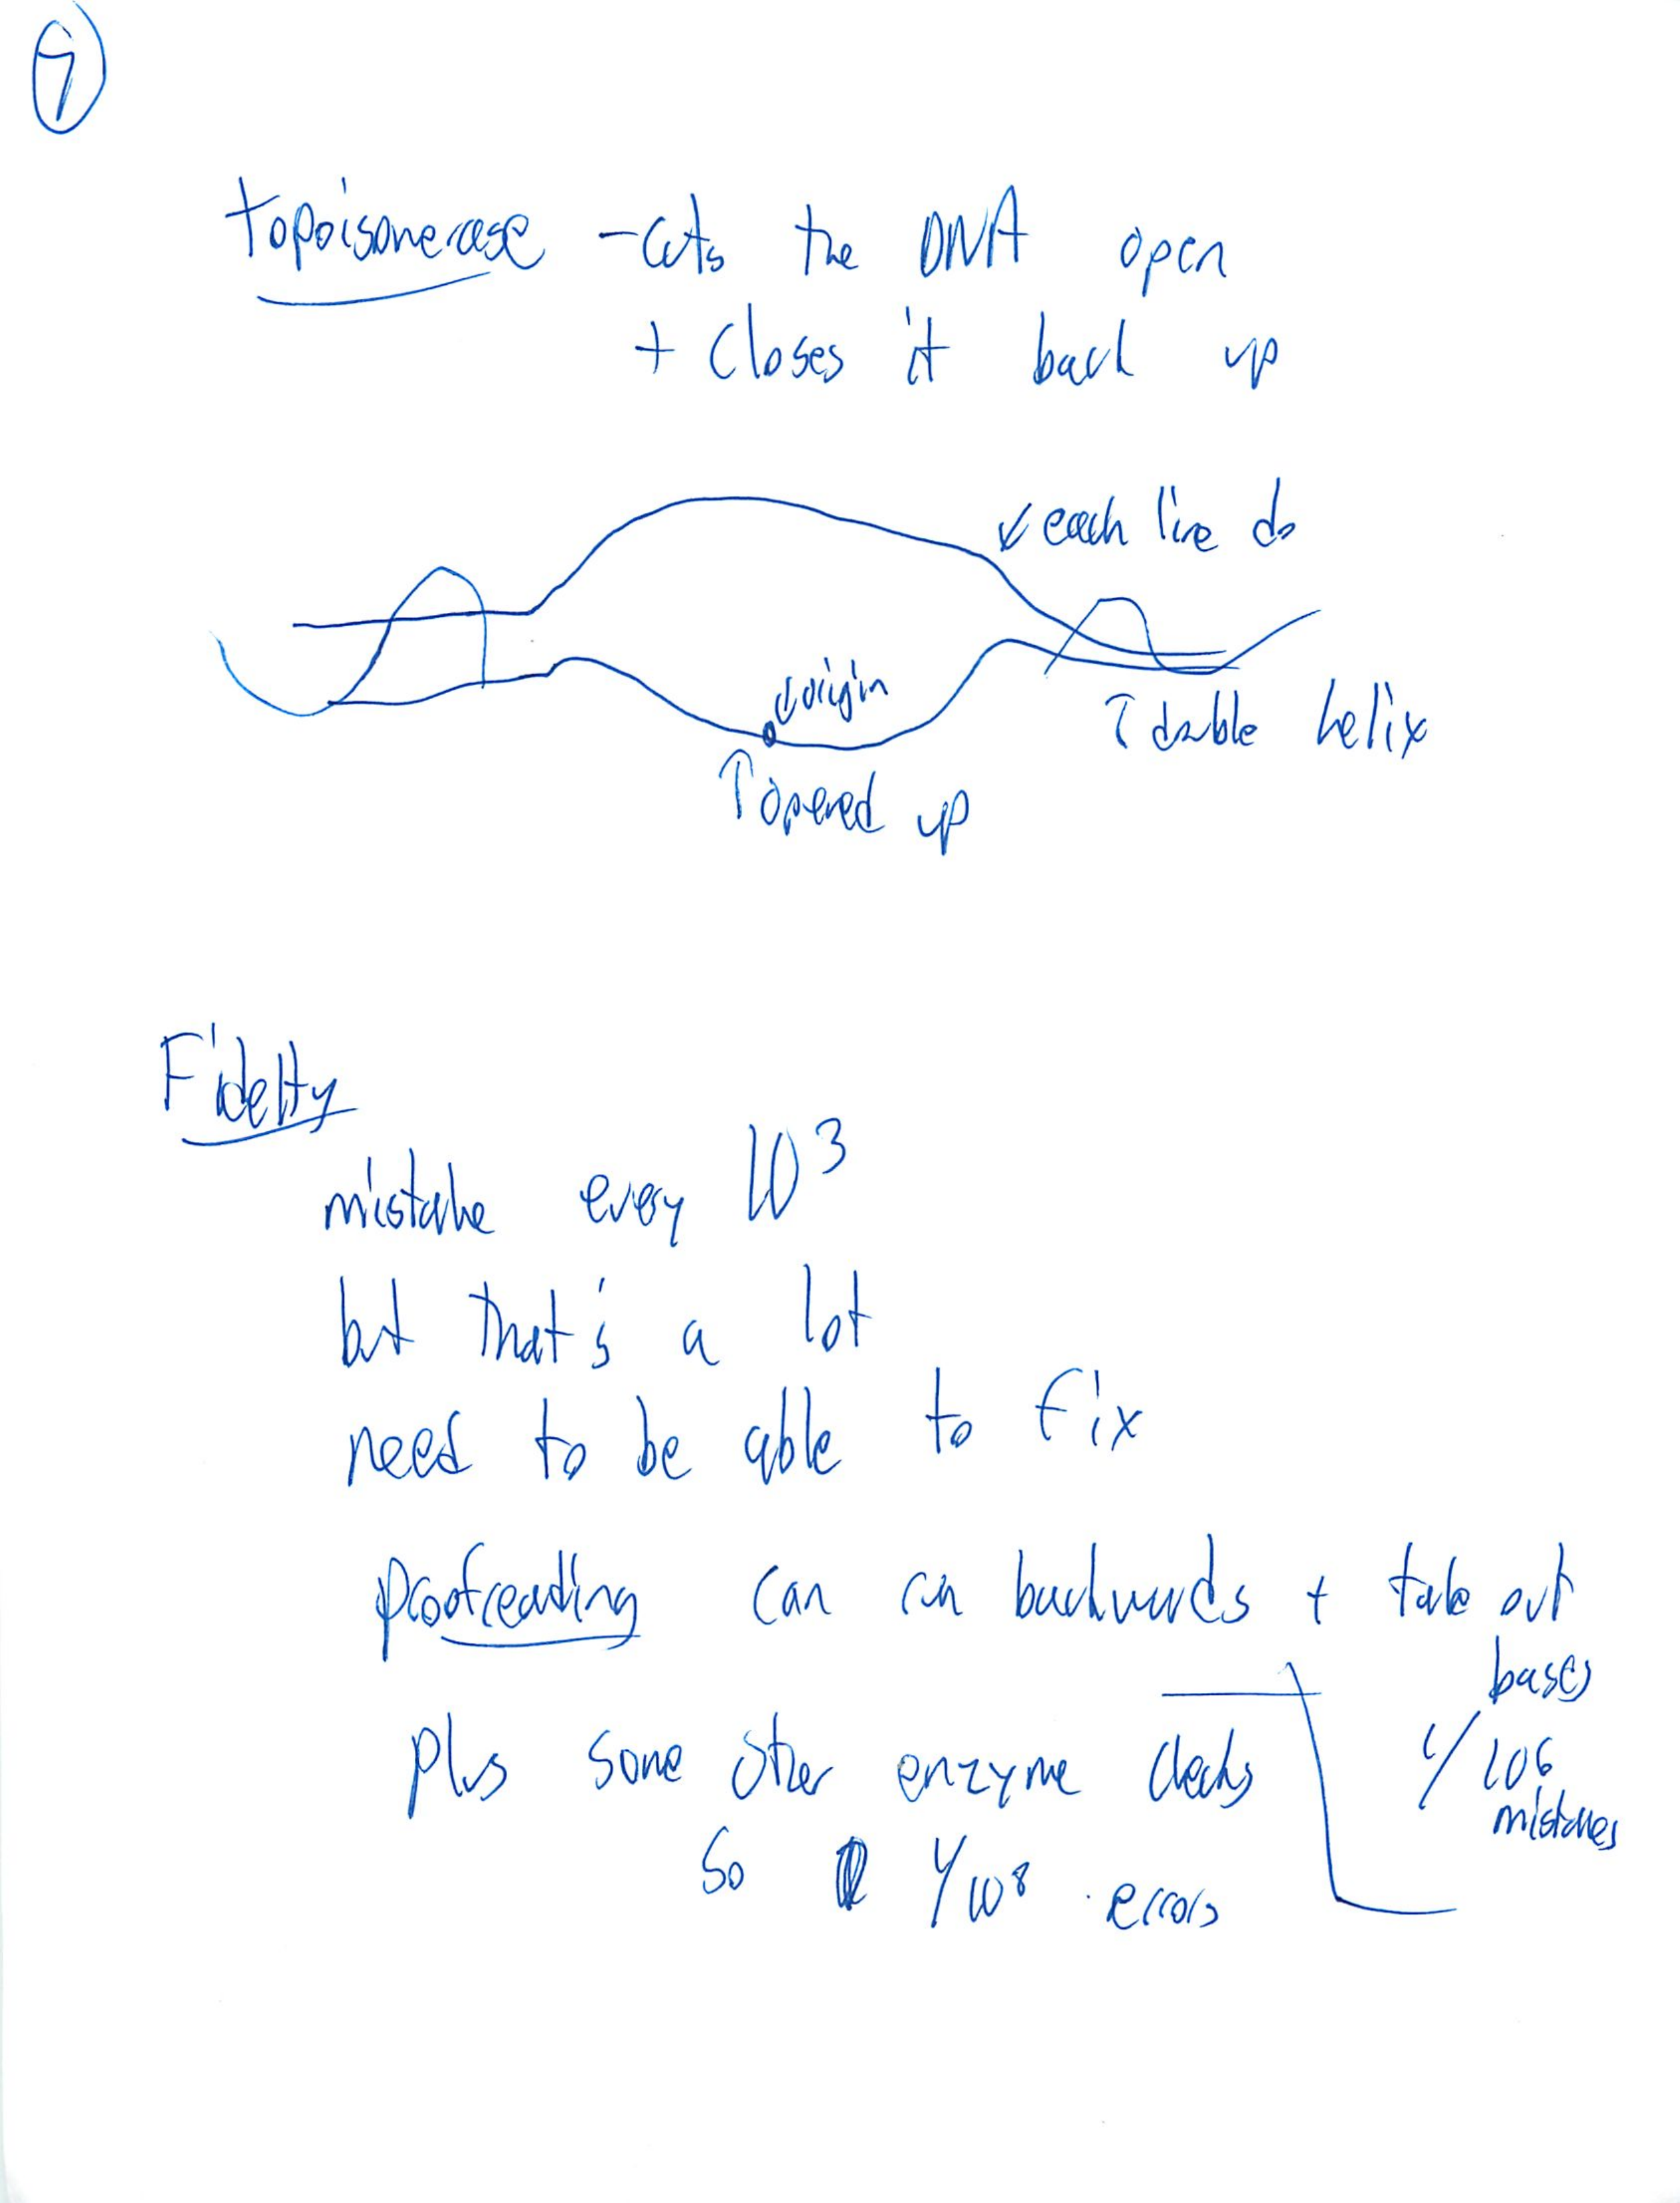 7
topoisomerase - cuts the DNA open
+ closes it back up
each line ds
origin
double helix
opened up
Fidelity
mistake every 10³
but that's a lot
need to be able to fix
proofreading can run backwards + take out
bases
plus some other enzyme checks
1/106
mistakes
so 1/10⁸ errors